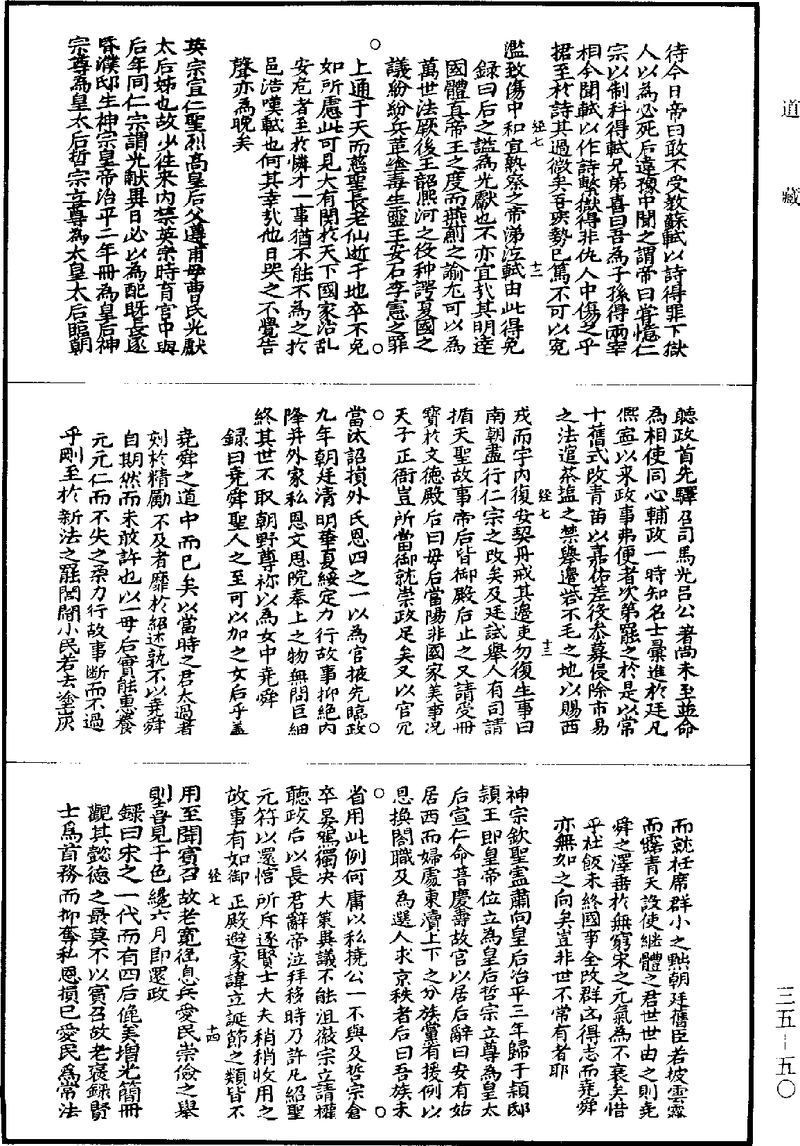 道藏
待今日帝曰敢不受教蘇軾以詩得罪下獄
人以為必死后違豫中聞之謂帝曰嘗憶仁
宗以制科得軾兄弟喜曰吾為子孫得兩宰
相今聞軾以作詩繫獄得非仇人中傷之乎
捃至於詩其過微矣吾疾勢已篤不可以冤
經七 十二
濫致傷中和宜熟察之帝涕泣軾由此得免
錄曰后之謚為光獻也不亦宜哉其明達
國體真帝王之度而燕薊之諭尤可以為
萬世法厥後王韶熙河之役种諤夏國之
議紛紛兵革塗毒生靈王安石李憲之罪
上通于天而慈聖長老仙逝于地卒不免
如所慮此可見大有関於天下國家治亂
安危者至於憐才一事猶不能不為之於
邑浩嘆軾也何其幸哉他日哭之不覺告
聲亦為晚矣
英宗宣仁聖烈高皇后父遵甫母曹氏光獻
太后姊也故少往來內禁英宗時育宮中與
后年同仁宗謂光獻異日必以為配既長遂
昏濮邸生神宗皇帝治平二年冊為皇后神
宗尊為皇太后哲宗立尊為太皇太后臨朝
聽政首先驛召司馬光呂公著尚未至並命
為相使同心輔政一時知名士彙進於廷凡
熙寧以來政事弗便者次第罷之於是以常
十舊式改青苗以嘉佑差役叅募侵除市易
之法逭茶塩之禁舉邊砦不毛之地以賜西
經七 十三
戎而宇內復安契丹戒其邊吏勿復生事曰
南朝盡行仁宗之政矣及廷試舉人有司請
循天聖故事帝后皆御殿后止之又請受冊
寶於文德殿后曰毋后當陽非國家美事況
天子正衙豈所當御就崇政足矣又以官冗
當汰詔損外氏恩四之一以為官掖先臨政
九年朝廷清明華夏綏定力行故事抑絕內
降并外家私恩文思院奉上之物無問巨細
終其世不取朝野尊稱以為女中堯舜
錄曰堯舜聖人之至可以加之女后乎蓋
堯舜之道中而已矣以當時之君太過者
刻於精勵不及者靡於紹述孰不以堯舜
自期然而未敢許也以一毋后實能惠養
元元仁而不失之柔力行故事斷而不過
乎剛至於新法之罷閭閻小民若去塗炭
而就衽席群小之黜朝廷舊臣若披雲霧
而覩青天設使繼體之君世世由之則堯
舜之澤垂於無窮宋之元氣為不衰矣惜
乎社飯未終國事全改群囚得志而堯舜
亦無如之何矣豈非世不常有者耶
神宗欽聖憲肅向皇后治平三年歸于潁邸
潁王即皇帝位立為皇后哲宗立尊為皇太
后宣仁命葺慶壽故宮以居后辭曰安有姑
居西而婦處東瀆上下之分族黨有援例以
恩換閤職及為選人求京秩者后曰吾族未
省用此例何庸以私撓公一不與及哲宗倉
卒晏駕獨決大策異議不能沮徽宗立請權
聽政后以長君辭帝泣拜移時乃許凡紹聖
元符以還惇所斥逐賢士大夫稍稍收用之
故事有如御正殿避家諱立誕節之類皆不
經七 十四
用至聞賓召故老寬徭息兵愛民崇儉之舉
則喜見于色纔六月即還政
錄曰宋之一代而有四后僊美增光簡冊
觀其懿德之最莫不以賓召故老褒錄賢
士為首務而抑奪私恩損已愛民為常法
三五—五〇